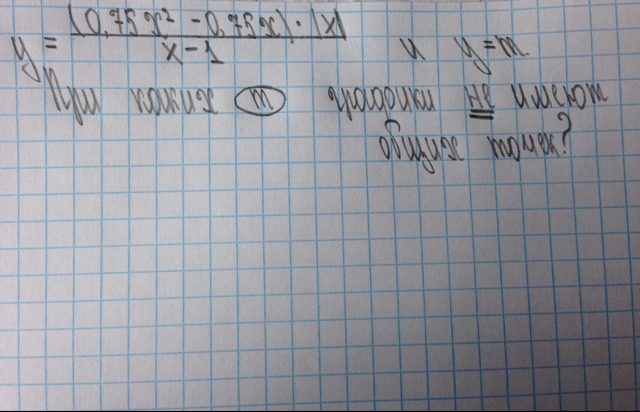 y = (0,75x² - 0,75x) · |x| / x - 1 и y = m
При каких m графики не имеют
общих точек?